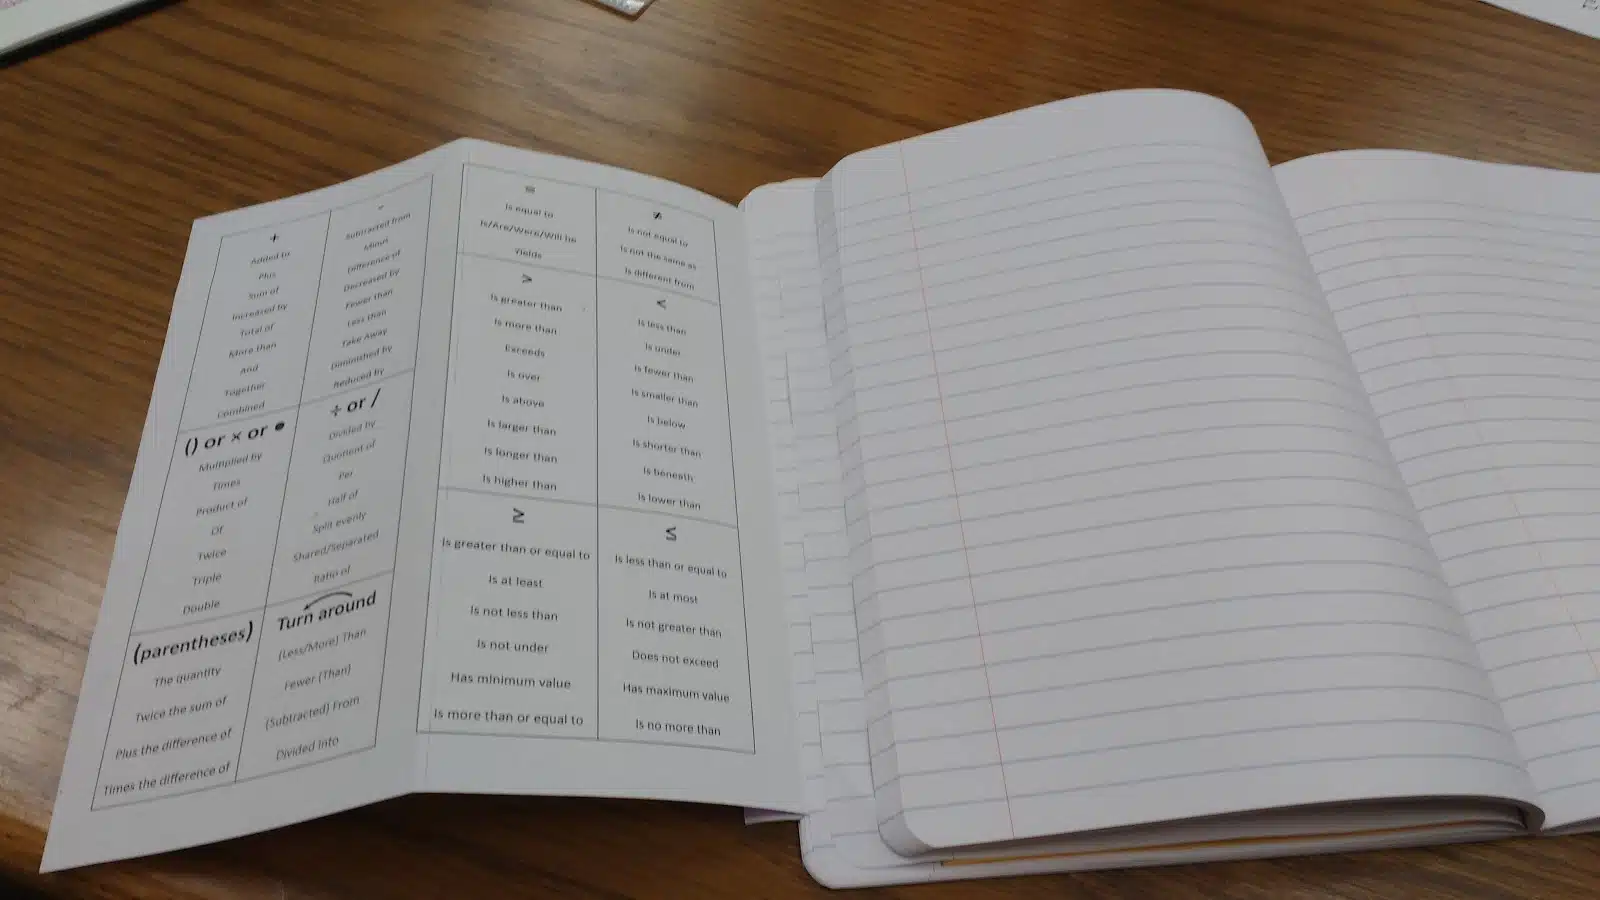 +
Added to
Plus
Sum of
Increased by
Total of
More than
And
Together
Combined
-
Subtracted from
Minus
Difference of
Decreased by
Fewer than
Less than
Take Away
Diminished by
Reduced by
() or × or ●
Multiplied by
Times
Product of
Of
Twice
Triple
Double
÷ or /
Divided by
Quotient of
Per
Half of
Split evenly
Shared/Separated
Ratio of
(parentheses)
The quantity
Twice the sum of
Plus the difference of
Times the difference of
Turn around
(Less/More) Than
Fewer (Than)
(Subtracted) From
Divided Into
=
Is equal to
Is/Are/Were/Will be
Yields
≠
Is not equal to
Is not the same as
Is different from
>
Is greater than
Is more than
Exceeds
Is over
Is above
Is larger than
Is longer than
Is higher than
<
Is less than
Is under
Is fewer than
Is smaller than
Is below
Is shorter than
Is beneath
Is lower than
≥
Is greater than or equal to
Is at least
Is not less than
Is not under
Has minimum value
Is more than or equal to
≤
Is less than or equal to
Is at most
Is not greater than
Does not exceed
Has maximum value
Is no more than